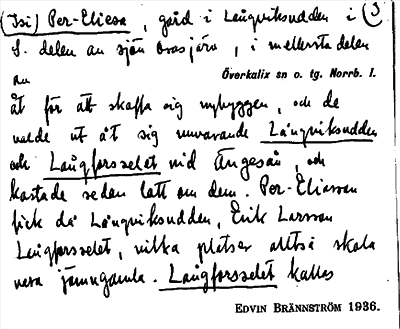 (Isi) Per-Eliesa, gård i Långviksudden i (3
S. delen av sjön Ovasjärv, i mellersta delen
av
Överkalix sn o. tg. Norrb. l.
åt för att skaffa sig nybyggen, och de
valde ut åt sig nuvarande Långviksudden
och Långforsselet vid Ängesån, och
kastade sedan lott om dem. Per-Eliasson
fick då Långviksudden, Erik Larsson
Långforsselet, vilka platser alltså skola
vara jämngamla. Långforsselet kallas
EDVIN BRÄNNSTRÖM 1936.